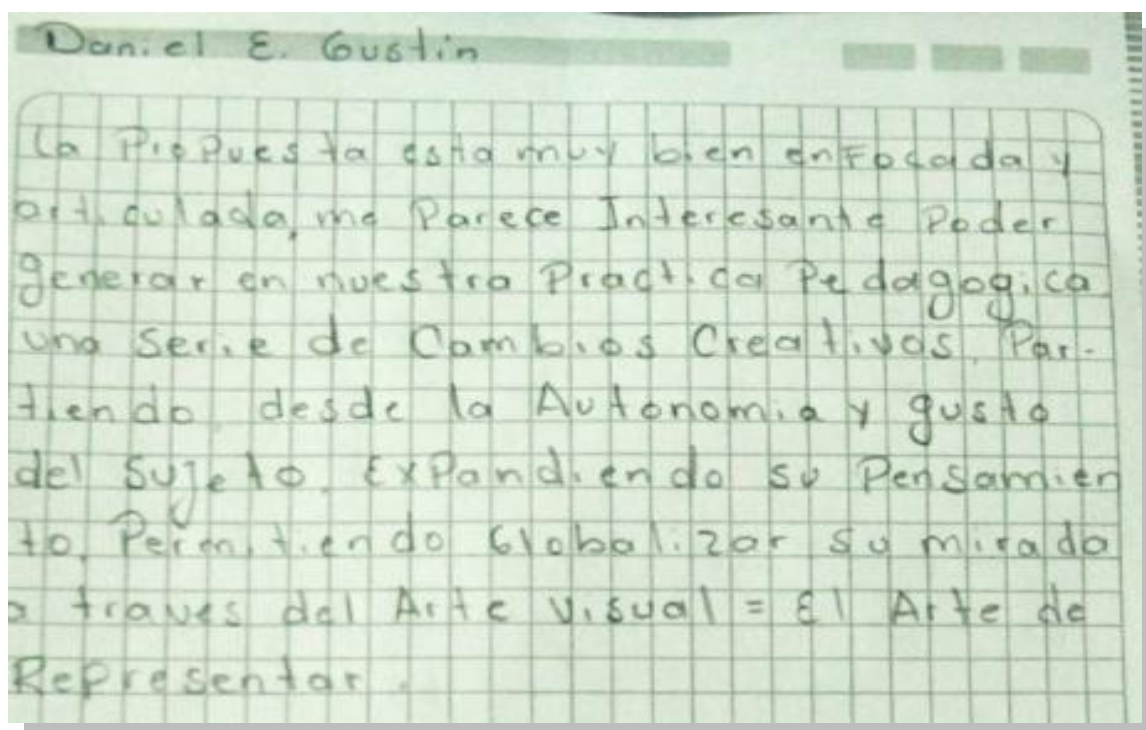 Daniel E. Gustin
La Propuesta esta muy bien enfocada y
articulada, me Parece Interesante Poder
generar en nuestra Practica Pedagogica
una serie de Cambios Creativos. Par-
tiendo desde la Autonomia y gusto
del sujeto. Expandiendo su Pensamien
to. Permitiendo Globalizar su mirada
a traves del Arte visual = El Arte de
Representar.